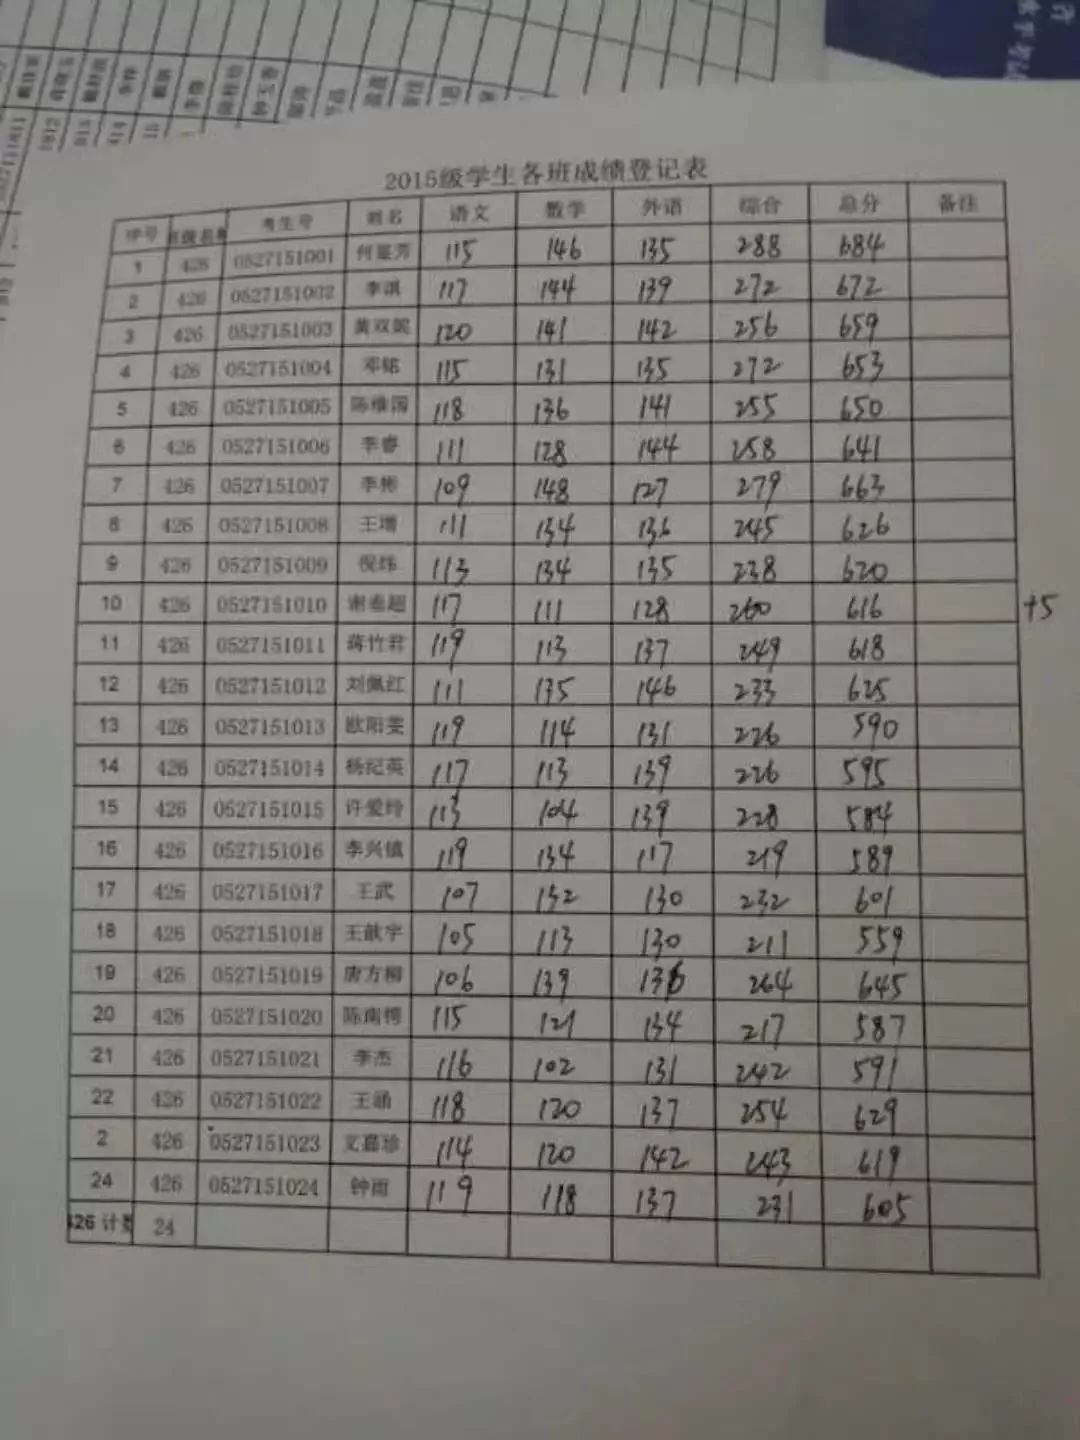 2015级学生各班成绩登记表
序号 考生号 姓名 语文 数学 外语 综合 总分 备注
1 426 0527151001 115 146 135 288 684
2 426 0527151002 李淇 117 144 139 272 672
3 426 0527151003 黄双妮 120 141 142 256 659
4 426 0527151004 邓铭 115 131 135 272 653
5 426 0527151005 陈维国 118 136 141 255 650
6 426 0527151006 李睿 111 128 144 258 641
7 426 0527151007 李彬 109 148 127 279 663
8 426 0527151008 王增 111 134 136 245 626
9 426 0527151009 倪炜 113 134 135 238 620
10 426 0527151010 117 111 128 260 616 +5
11 426 0527151011 蒋竹君 119 113 137 249 618
12 426 0527151012 刘佩红 111 135 146 233 625
13 426 0527151013 欧阳雯 119 114 131 226 590
14 426 0527151014 杨纪英 117 113 139 226 595
15 426 0527151015 许爱玲 113 104 139 228 584
16 426 0527151016 李兴镇 119 134 117 219 589
17 426 0527151017 王武 107 132 130 232 601
18 426 0527151018 王歆宇 105 113 130 211 559
19 426 0527151019 唐方柳 106 139 136 264 645
20 426 0527151020 115 121 134 217 587
21 426 0527151021 李杰 116 102 131 242 591
22 426 0527151022 王涵 118 120 137 254 629
2 426 0527151023 文嘉珍 114 120 142 243 619
24 426 0527151024 钟雨 119 118 137 231 605
426 计数 24